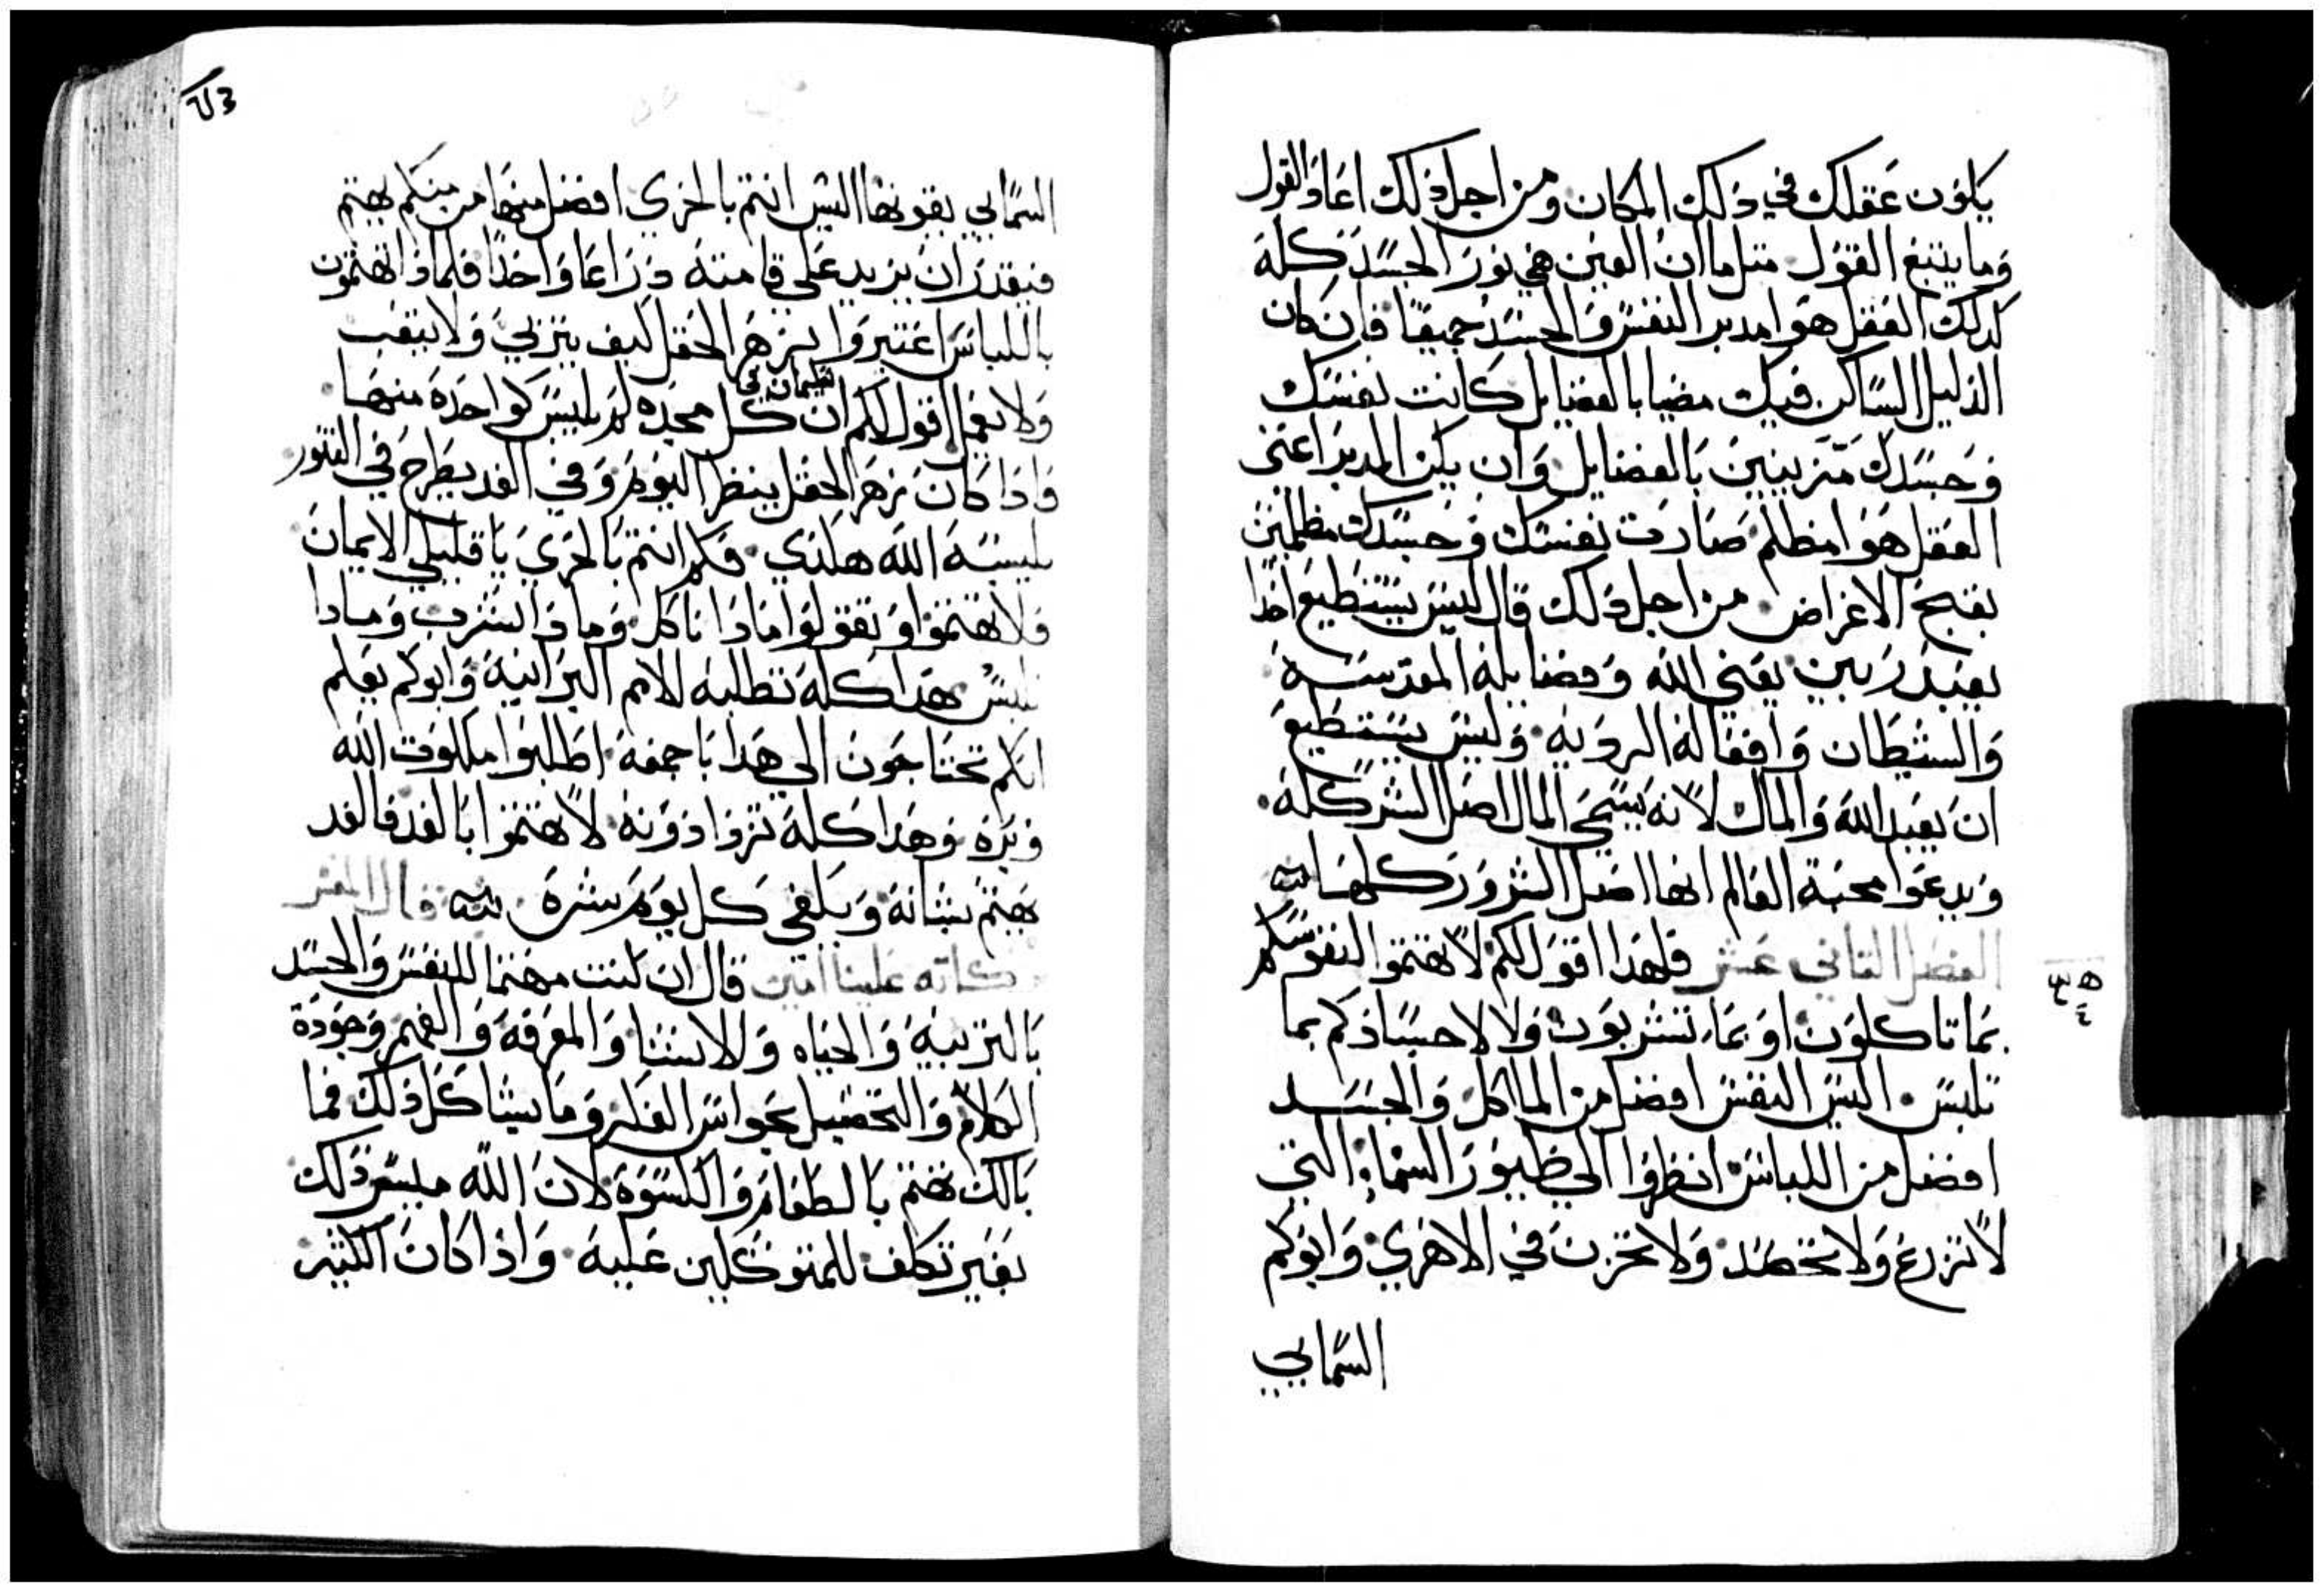 يكون عقلك في ذلك المكان ومن اجل ذلك اعاد القول
وما يتبع القول متل ما ان العين هي نور الجسد كله
كدلك العقل هو مدبر النفس والجسد جميعا فان كان
الدليل الساكن فيك مضيا بالفضايل كانت نفسك
وجسدك متزينين بالفضايل وان يكن المدبر اعنى
العقل هو مظلم صارت نفسك وجسدك مظلمين
بقبح الاغراض من اجل دلك قال ليس يستطيع احدا
يعبد ربين يعنى الله وفضايله المقدسة
والشيطان وافعاله الرديه وليس يستطيع
ان يعبد الله والمال لانه يسمى المال اصل الشر كله
ويدعوا محبة العالم انها اصل الشرور كلها
الفصل التاني عشر فلهدا اقول لكم لا تهتموا لنفوسكم
بما تاكلون او بما تشربون ولا لاجسادكم بما
تلبس اليس النفس افضل من الماكل والجسد
افضل من اللباس انظروا الى طيور السماء التي
لا تزرع ولا تحصد ولا تخزن في الاهري وابوكم
السمايي
السمايي يقوتها اليس انتم بالحري افضل منها من منكم يهتم
فيقدر ان يزيد على قامته دراعا واحدا فلمادا تهتمون
باللباس اعتبروا بزهر الحقل كيف يتربي ولا يتعب
ولا يعمل اقول لكم ان سليمان في كل مجده لم يلبس كواحده منها
وادا كان زهر الحقل ينظر اليوم وفي الغد يطرح في التنور
يلبسه الله هكدي فكم انتم بالحري يا قليلي الايمان
فلا تهتموا وتقولوا مادا ناكل ومادا نشرب ومادا
نلبس هدا كله تطلبه الامم البرانية وابوكم يعلم
انكم تحتاجون الى هدا باجمعه اطلبوا ملكوت الله
وبره وهدا كله تزدادونه لا تهتموا بالغد فالغد
يهتم بشانه ويكفي كل يوم شره قال المفسر
بركاته علينا امين قال ان كنت مهتما للنفس والجسد
بالتربيه والحياه والانشا والمعرفه والفهم وجودة
الكلام والتحصيل بحواس الفكر وما يشاكل ذلك فما
بالك تهتم بالطعام والكسوة لان الله ميسر ذلك
بغير تكلف للمتوكلين عليه واذا كان الكثير